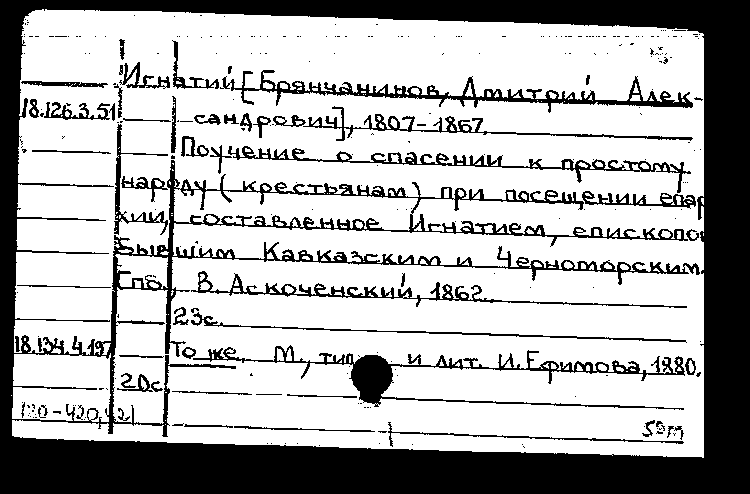 Игнатий [Брянчанинов, Дмитрий Алек-
18.126.3.51 сандрович], 1807-1867.
Поучение о спасении к простому
народу (крестьянам) при посещении епар
хии, составленное Игнатием, епископо
бывшим Кавказским и Черноморским.
Спб., В. Аскоченский, 1862.
23с.
18.134.4.197 То же. М., тип. и лит. И. Ефимова, 1880.
20с.
120-420,421